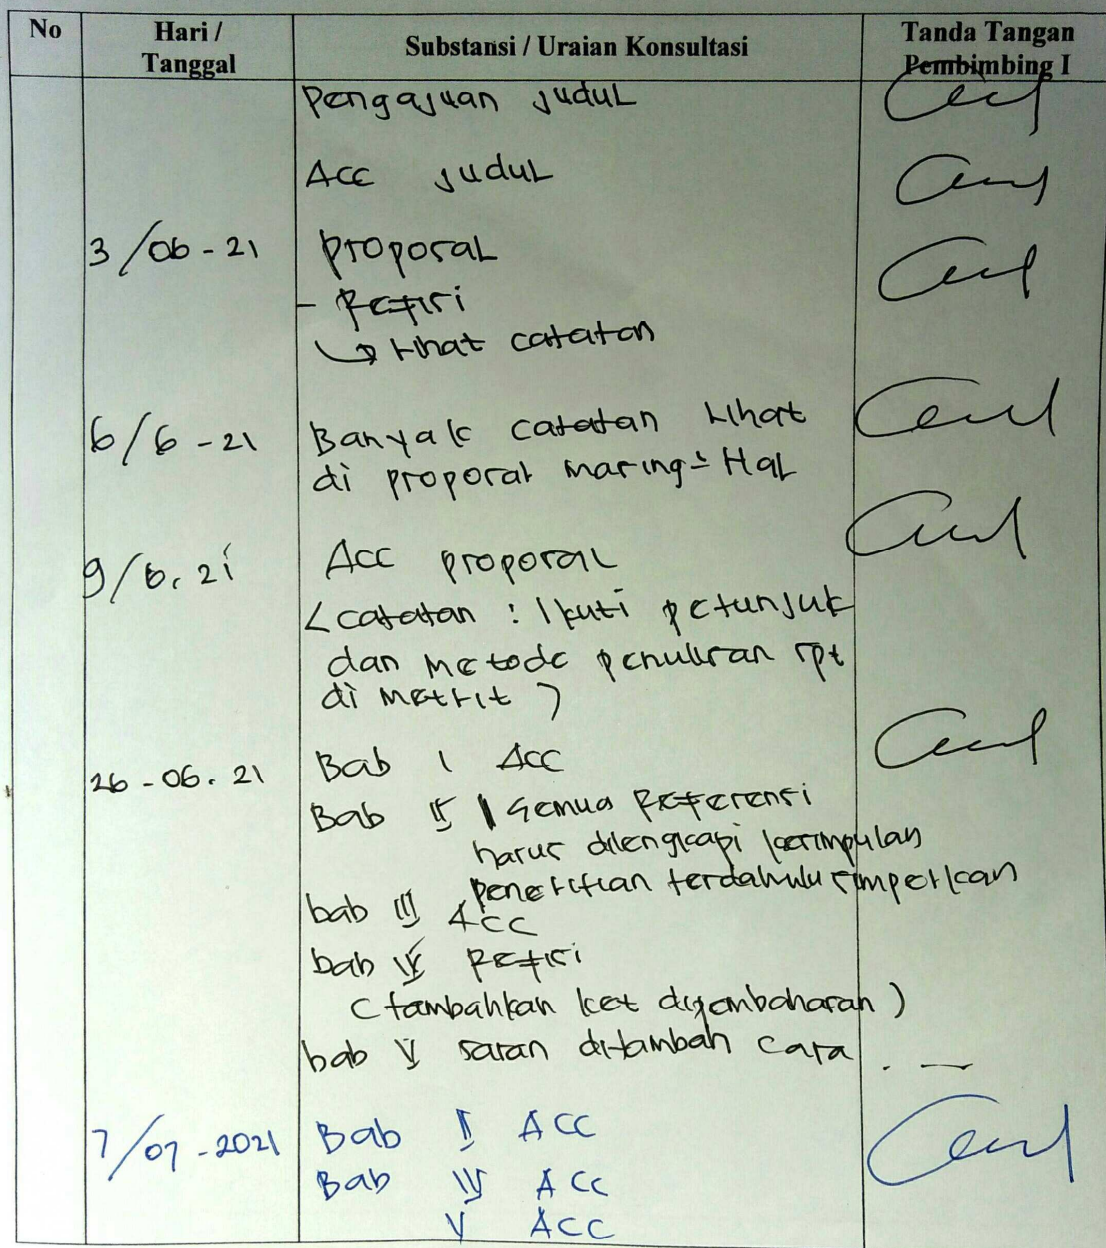 No Hari / Tanggal Substansi / Uraian Konsultasi Tanda Tangan Pembimbing I
Pengajuan judul
Acc judul
3/06-21 proposal
- Refisi
↳ lihat catatan
6/6-21 Banyak catatan lihat
di proposal masing= Hal
9/6.21 Acc proposal
(catatan : Ikuti petunjuk
dan metode penulisan spt
di metlit)
26-06.21 Bab I Acc
Bab II Semua Referensi
harus dilengkapi kesimpulan
penelitian terdahulu simpelkan
bab III Acc
bab IV Refisi
(tambahkan ket dipembahasan)
bab V saran ditambah cara . —
7/07-2021 Bab II ACC
Bab IV ACC
V ACC